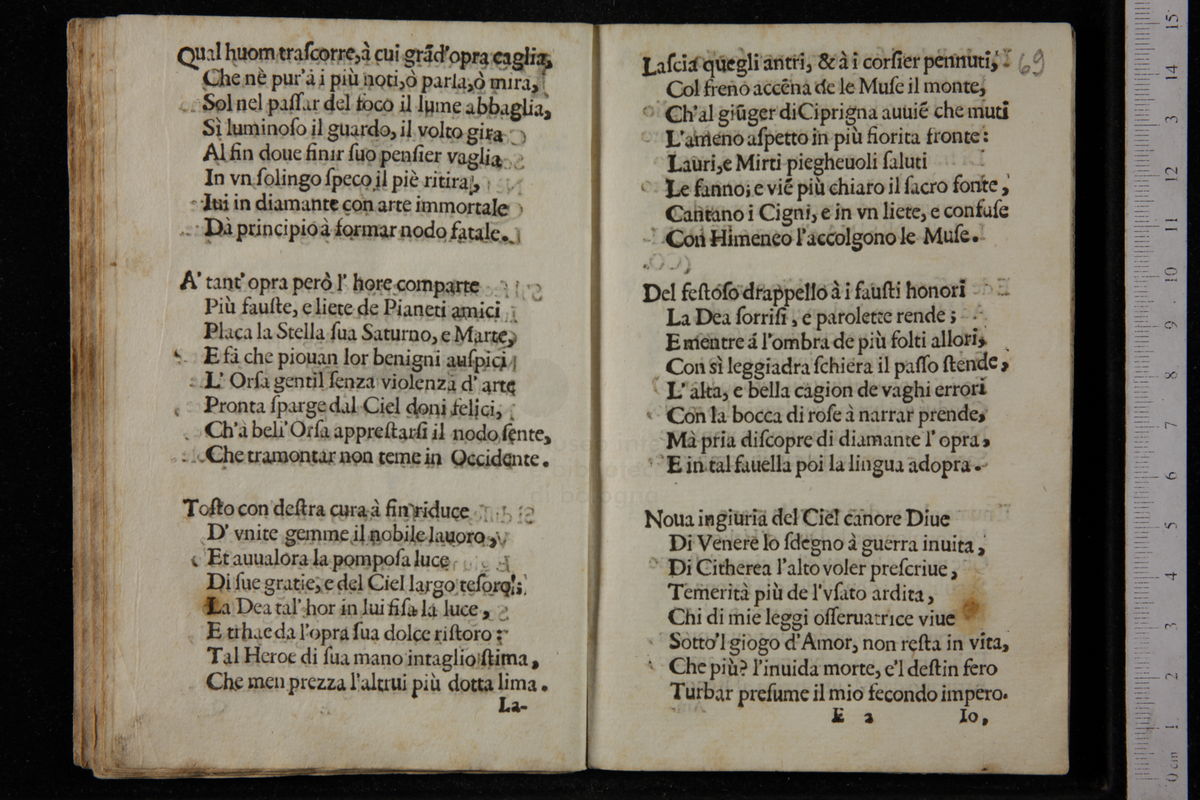 Qual huom trascorre,à cui grãd'opra caglia,
Che nè pur'à i più noti,ò parla,ò mira,
Sol nel passar del foco il lume abbaglia,
Sì luminoso il guardo, il volto gira
Al fin doue finir suo pensier vaglia
In vn solingo speco il piè ritira,
Iui in diamante con arte immortale
Dà principio à formar nodo fatale.
A' tant' opra però l' hore comparte
Più fauste, e liete de Pianeti amici
Placa la Stella sua Saturno, e Marte,
E fà che piouan lor benigni auspici
L' Orsa gentil senza violenza d' arte
Pronta sparge dal Ciel doni felici,
Ch'à bell'Orsa apprestarsi il nodo sente,
Che tramontar non teme in Occidente.
Tosto con destra cura à fin riduce
D' vnite gemme il nobile lauoro,
Et auualora la pomposa luce
Di sue gratie, e del Ciel largo tesoro;
La Dea tal' hor in lui fisa la luce,
E trhae da l'opra sua dolce ristoro:
Tal Heroe di sua mano intaglio stima,
Che men prezza l'altrui più dotta lima.
La-
69
Lascia quegli antri, & à i corsier pennuti,
Col freno accẽna de le Muse il monte,
Ch'al giũger di Ciprigna auuiẽ che muti
L'ameno aspetto in più fiorita fronte:
Lauri,e Mirti piegheuoli saluti
Le fanno; e viẽ più chiaro il sacro fonte,
Cantano i Cigni, e in vn liete, e confuse
Con Himeneo l'accolgono le Muse.
Del festoso drappello à i fausti honori
La Dea sorrisi, e parolette rende;
E mentre á l'ombra de più folti allori,
Con sì leggiadra schiera il passo stende,
L' alta, e bella cagion de vaghi errori
Con la bocca di rose à narrar prende,
Mà pria discopre di diamante l' opra,
E in tal fauella poi la lingua adopra.
Noua ingiuria del Ciel canore Diue
Di Venere lo sdegno à guerra inuita,
Di Citherea l'alto voler prescriue,
Temerità più de l'vsato ardita,
Chi di mie leggi osseruatrice viue
Sotto'l giogo d'Amor, non resta in vita,
Che più? l'inuida morte, e'l destin fero
Turbar presume il mio fecondo impero.
E 2 Io,